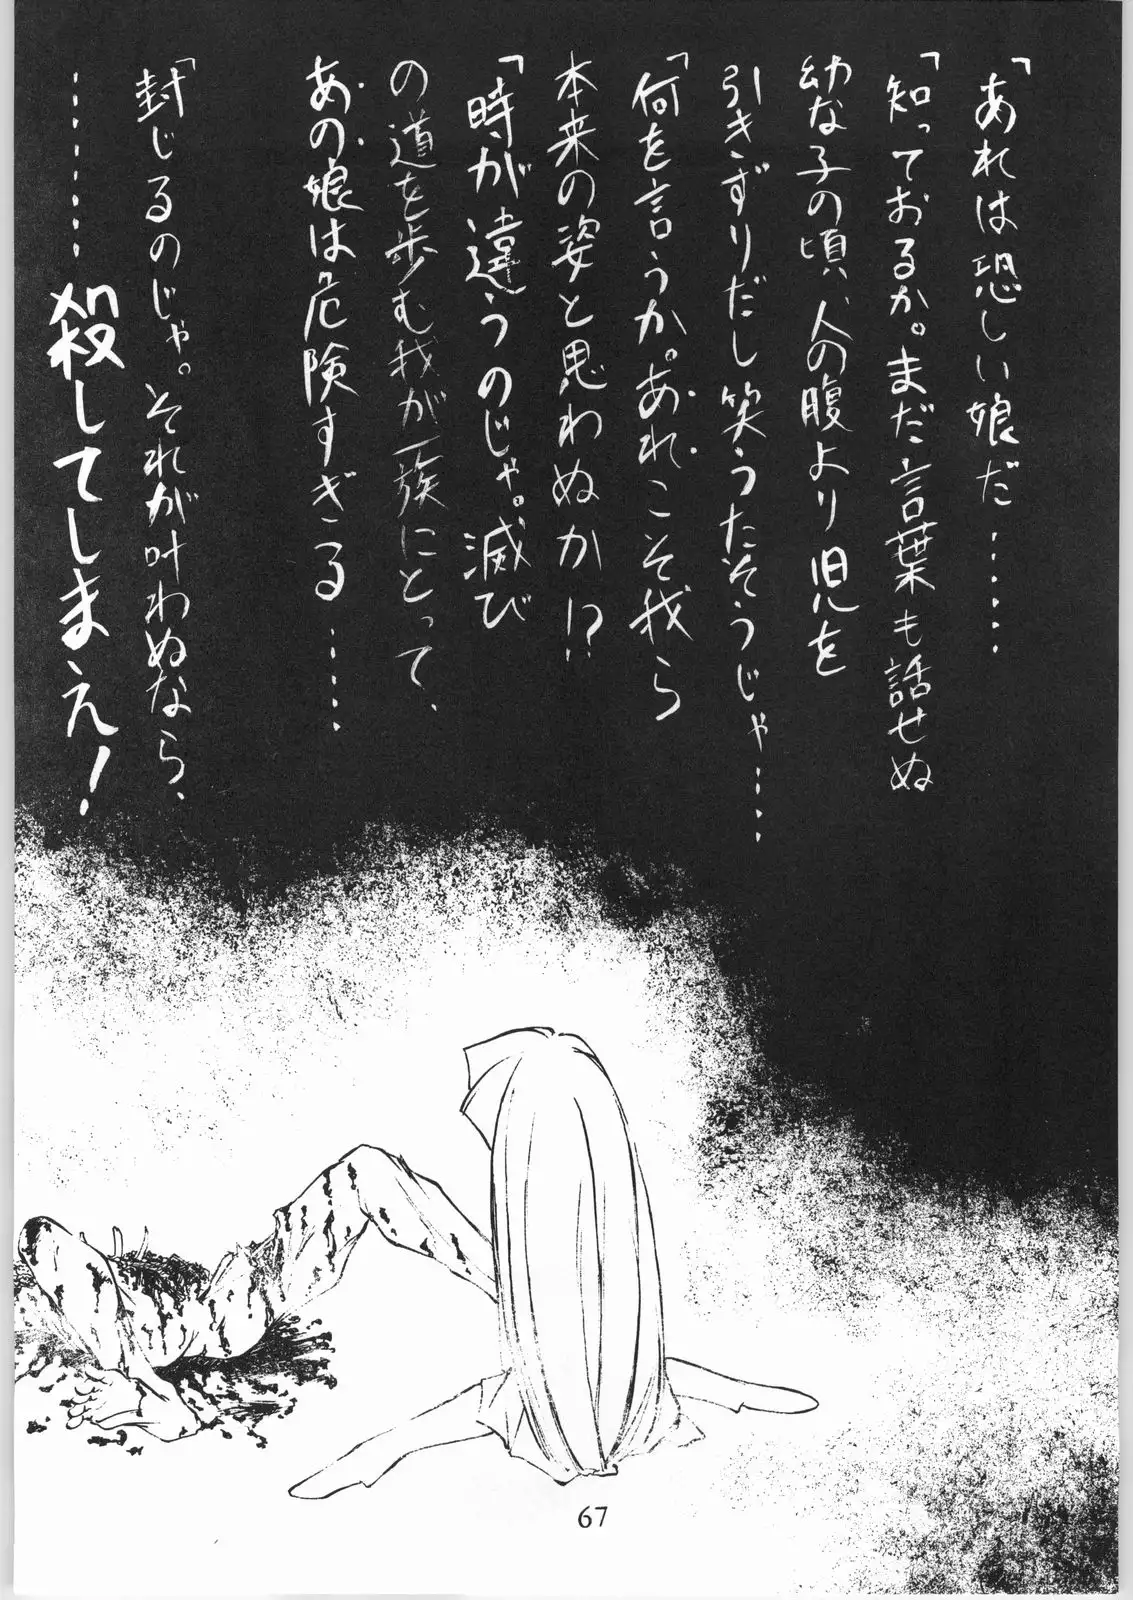 「あれは恐しい娘だ……
「知っておるか。まだ言葉も話せぬ
幼な子の頃、人の腹より児を
引きずりだし笑うたそうじゃ……
「何を言うか。あれこそ我ら
本来の姿と思わぬか!?
「時が違うのじゃ。滅び
の道を歩む我が一族にとって、
あの娘は危険すぎる……
「封じるのじゃ。それが叶わぬなら、
……殺してしまえ!
67